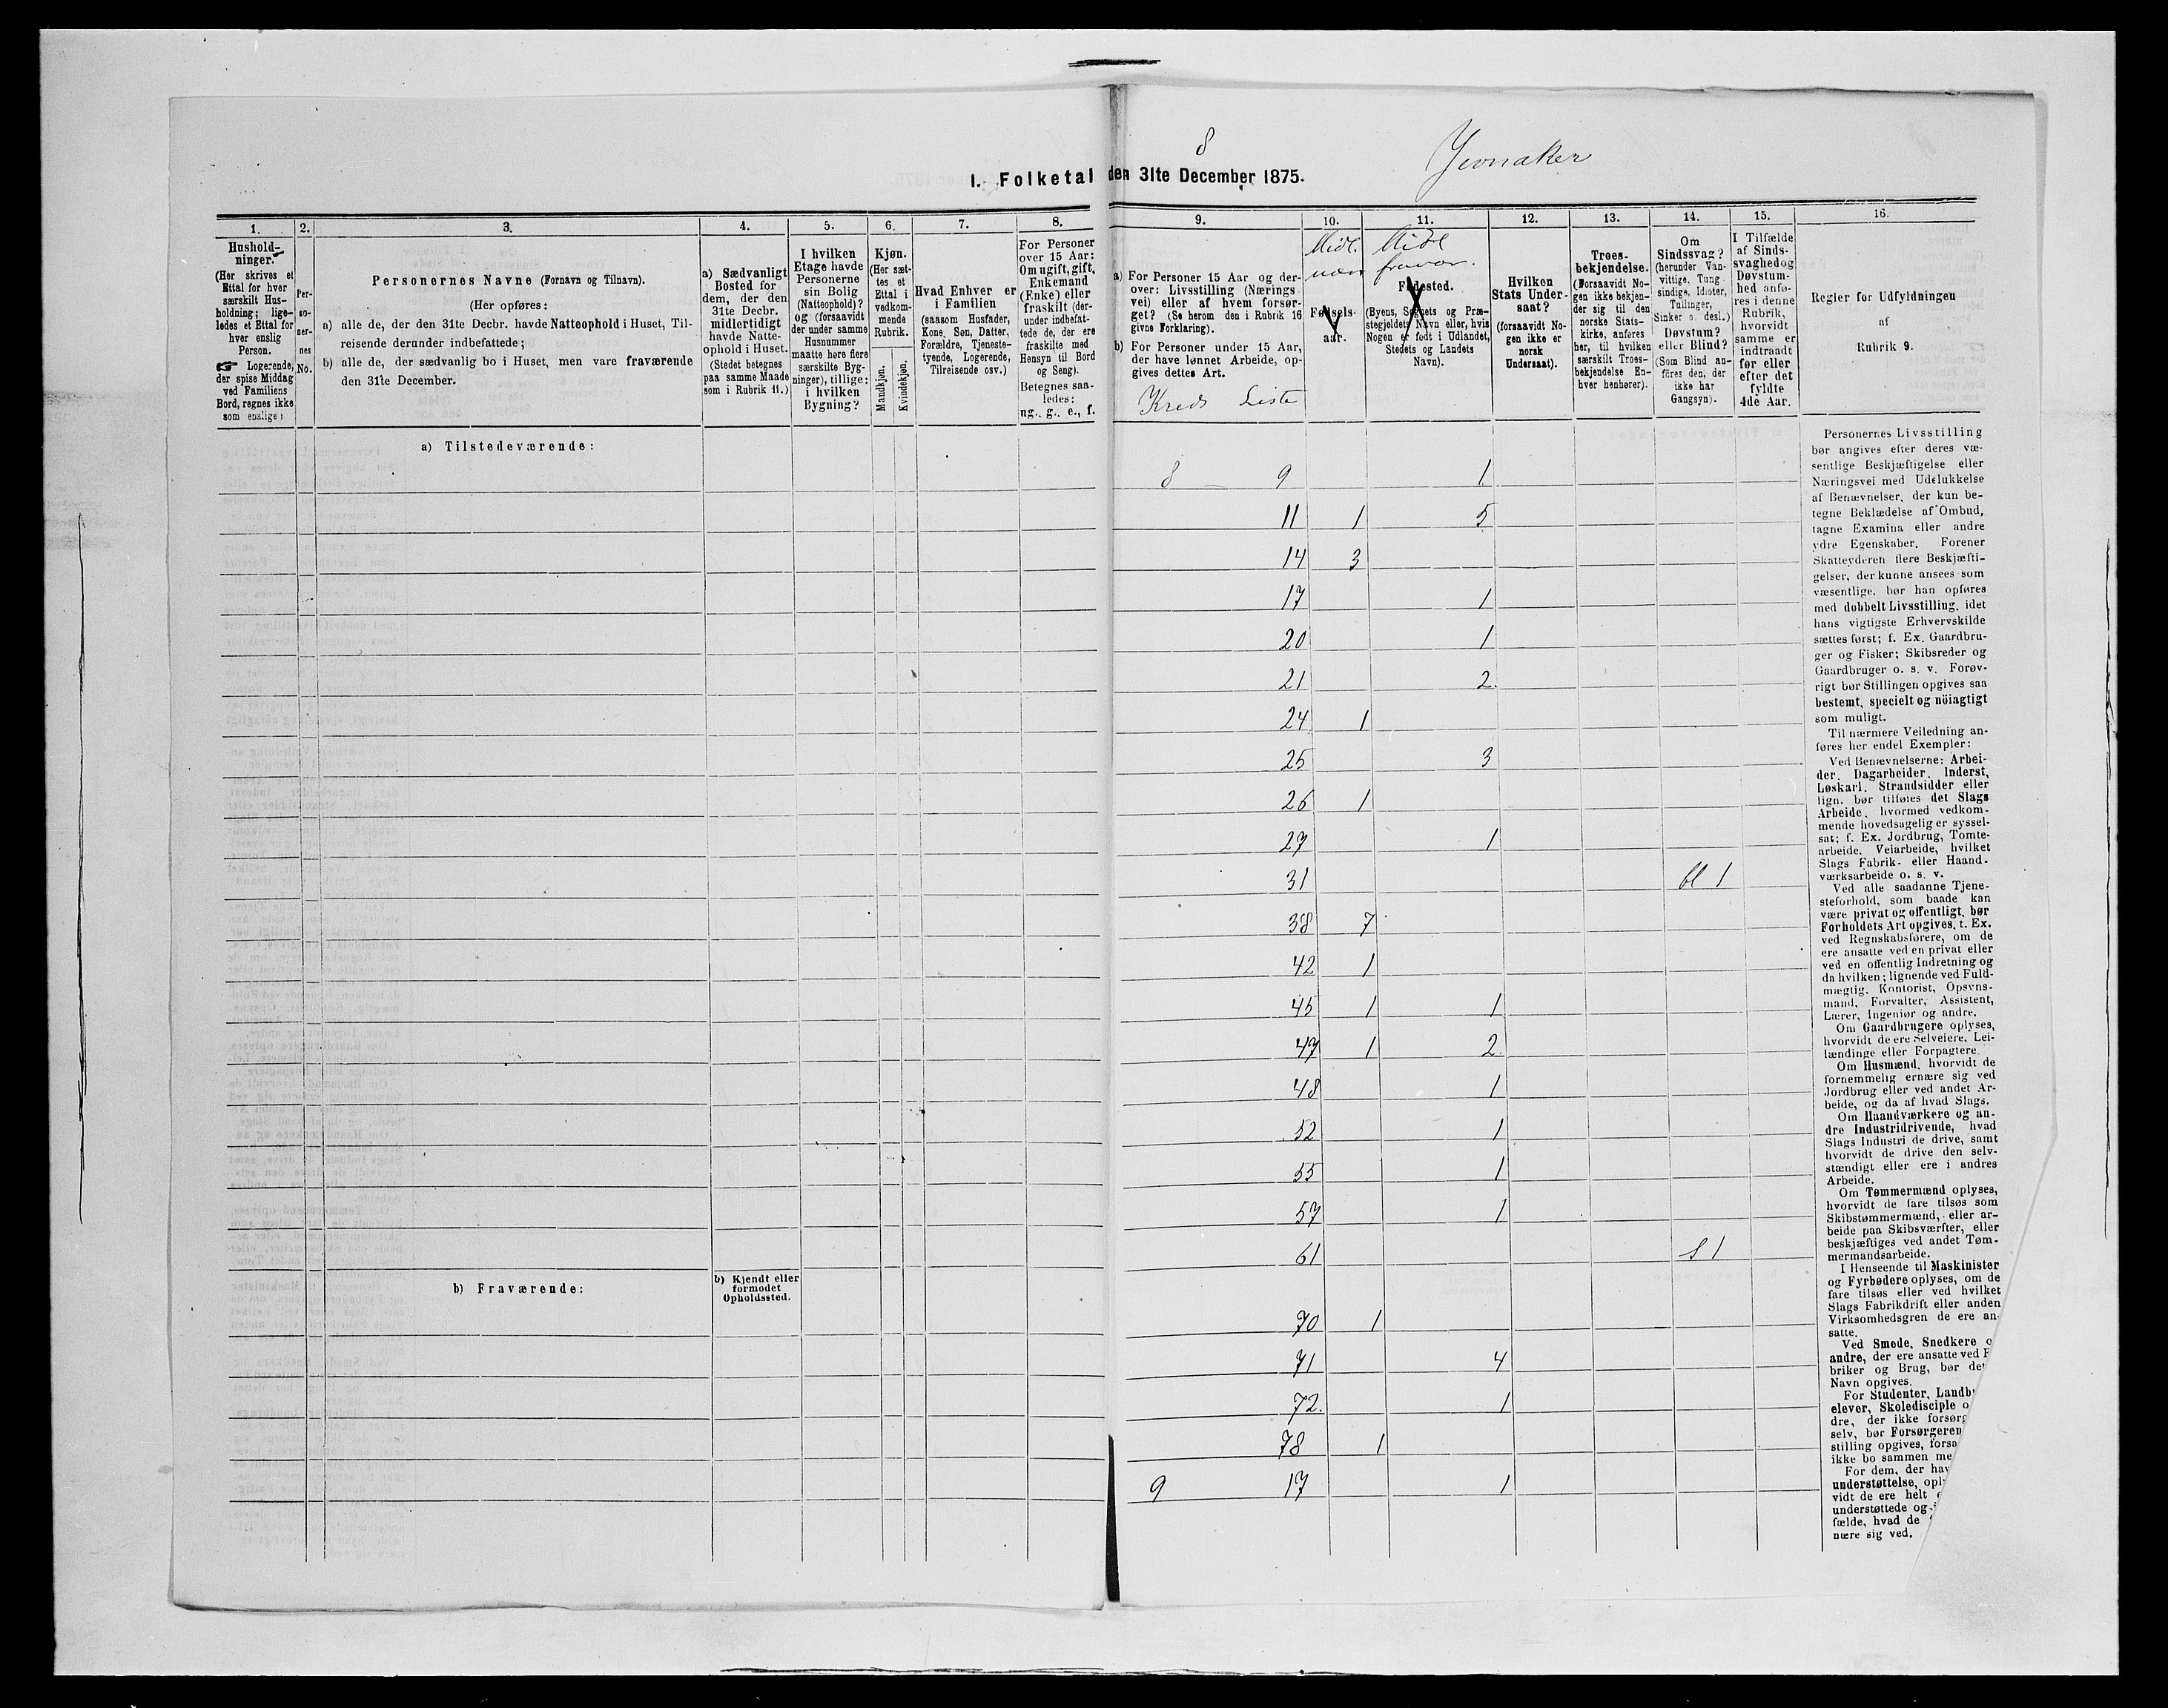 8
Jevnaker
I. Folketal den 31te December 1875.
1. 2. 3. 4. 5. 6. 7. 8. 9. 10. 11. 12. 13. 14. 15. 16.
Hushold-
ninger.
(Her skrives et
Ettal for hver
særskilt Hus-
holdning; lige-
ledes et Ettal for
hver enslig
Person.
☞ Logerende,
der spise Middag
ved Familiens
Bord, regnes ikke
som enslige)
Per-
so-
ner-
nes
No.
Personernes Navne (Fornavn og Tilnavn).
(Her opføres:
a) alle de, der den 31te Decbr. havde Natteophold i Huset, Til-
reisende derunder indbefattede;
b) alle de, der sædvanlig bo i Huset, men vare fraværende
den 31te December.
a) Sædvanligt
Bosted for
dem, der den
31te Decbr.
midlertidigt
havde Natte-
ophold i Huset.
(Stedet betegnes
paa samme Maade
som i Rubrik 11.)
I hvilken
Etage havde
Personerne
sin Bolig
(Natteophold)?
og (forsaavidt
der under samme
Husnummer
maatte høre flere
særskilte Byg-
ninger), tillige:
i hvilken
Bygning?
Kjøn.
(Her sæt-
tes et
Ettal i
vedkom-
mende
Rubrik.
Mandkjøn.
Kvindekjøn.
Hvad Enhver er
i Familien
(saasom Husfader,
Kone, Søn, Datter,
Forældre, Tjeneste-
tyende, Logerende,
Tilreisende osv.)
For Personer
over 15 Aar:
Om ugift, gift,
Enkemand
(Enke) eller
fraskilt (der-
under indbefat-
tede de, der ere
fraskilte med
Hensyn til Bord
og Seng).
Betegnes saa-
ledes:
ug., g., e., f.
a) For Personer 15 Aar og der-
over: Livsstilling (Nærings-
vei) eller af hvem forsør-
get? (Se herom den i Rubrik 16
givne Forklaring).
b) For Personer under 15 Aar,
der have lønnet Arbeide, op-
gives dettes Art.
Kreds Liste
Midl.
nær
Fødsels-
aar.
Midl
fravær.
Fødested.
(Byens, Sognets og Præ-
stegjeldets Navn eller, hvis
Nogen er født i Udlandet,
Stedets og Landets
Navn).
Hvilken
Stats Under-
saat?
(forsaavidt No-
gen ikke er
norsk
Undersaat).
Troes-
bekjendelse.
(Forsaavidt No-
gen ikke bekjen-
der sig til den
norske Stats-
kirke, anføres
her, til hvilken
særskilt Troes-
bekjendelse En-
hver henhører).
Om
Sindssvag?
(herunder Van-
vittige, Tung-
sindige, Idioter,
Tullinger,
Sinker o. desl.)
Døvstum?
eller Blind?
(Som Blind an-
føres den, der
ikke har
Gangsyn).
I Tilfælde
af Sinds-
svaghed og
Døvstum-
hed anfø-
res i denne
Rubrik,
hvorvidt
samme er
indtraadt
før eller
efter det
fyldte
4de Aar.
Regler for Udfyldningen
af
Rubrik 9.
a) Tilstedeværende:
8 — 9 1
11 1 5
14 3
17 1
20 1
21 2
24 1
25 3
26 1
27 1
31 bl 1
38 7
42 1
45 1 1
47 1 2
48 1
52 1
55 1
57 1
61 s 1
b) Fraværende:
b) Kjendt eller
formodet
Opholdssted.
70 1
71 4
72. 1
78 1
9 17 1
Personernes Livsstilling
bør angives efter deres væ-
sentlige Beskjæftigelse eller
Næringsvei med Udelukkelse
af Benævnelser, der kun be-
tegne Beklædelse af Ombud,
tagne Examina eller andre
ydre Egenskaber. Forener
Skatteyderen flere Beskjæfti-
gelser, der kunne ansees som
væsentlige, bør han opføres
med dobbelt Livsstilling, idet
hans vigtigste Erhvervskilde
sættes først; f. Ex. Gaardbru-
ger og Fisker; Skibsreder og
Gaardbruger o. s. v. Forøv-
rigt bør Stillingen opgives saa
bestemt, specielt og nöiagtigt
som muligt.
Til nærmere Veiledning an-
føres her endel Exempler:
Ved Benævnelserne: Arbei-
der, Dagarbeider, Inderst,
Løskarl, Strandsidder eller
lign. bør tilføies det Slags
Arbeide, hvormed vedkom-
mende hovedsagelig er syssel-
sat; f. Ex. Jordbrug, Tomte-
arbeide, Veiarbeide, hvilket
Slags Fabrik- eller Haand-
værksarbeide o. s. v.
Ved alle saadanne Tjene-
steforhold, som baade kan
være privat og offentligt, bør
Forholdets Art opgives, t. Ex.
ved Regnskabsførere, om de
ere ansatte ved en privat eller
ved en offentlig Indretning og
da hvilken; lignende ved Fuld-
mægtig, Kontorist, Opsyns-
mand, Forvalter, Assistent,
Lærer, Ingeniør og andre.
Om Gaardbrugere oplyses,
hvorvidt de ere Selveiere, Lei-
lændinge eller Forpagtere.
Om Husmænd, hvorvidt de
fornemmelig ernære sig ved
Jordbrug eller ved andet Ar-
beide, og da af hvad Slags.
Om Haandværkere og an-
dre Industridrivende, hvad
Slags Industri de drive, samt
hvorvidt de drive den selv-
stændigt eller ere i andres
Arbeide.
Om Tømmermænd oplyses,
hvorvidt de fare tilsøs som
Skibstømmermænd, eller ar-
beide paa Skibsværfter, eller
beskjæftiges ved andet Tøm-
mermandsarbeide.
I Henseende til Maskinister
og Fyrbødere oplyses, om de
fare tilsøs eller ved hvilket
Slags Fabrikdrift eller anden
Virksomhedsgren de ere an-
satte.
Ved Smede, Snedkere o
andre, der ere ansatte ved F
briker og Brug, bør det
Navn opgives.
For Studenter, Landb
elever, Skoledisciple o
dre, der ikke forsørg
selv, bør Forsørgeren
stilling opgives, forsa
ikke bo sammen me
For dem, der hav
understøttelse, opl
vidt de ere helt
understøttede og i
fælde, hvad de
nære sig ved.